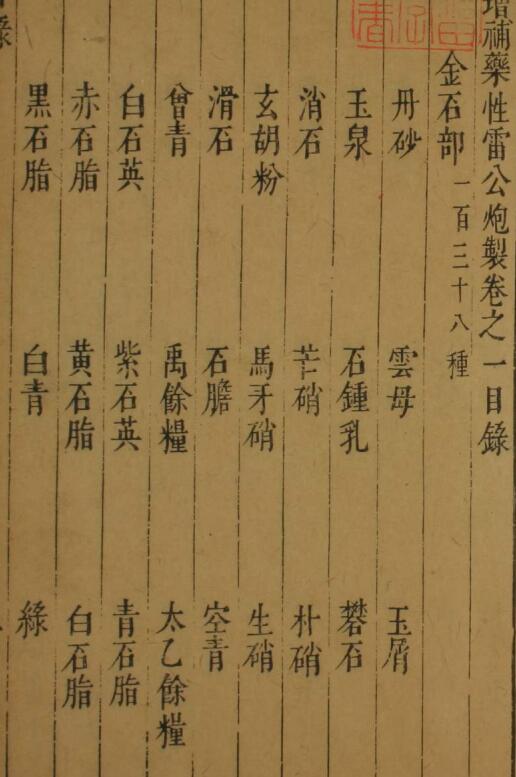 增補藥性雷公炮製卷之一目錄
金石部 一百三十八種
丹砂 雲母 玉屑
玉泉 石鍾乳 礬石
消石 芒硝 朴硝
玄胡粉 馬牙硝 生硝
滑石 石膽 空青
曾青 禹餘糧 太乙餘糧
白石英 紫石英 青石脂
赤石脂 黄石脂 白石脂
黑石脂 白青 綠